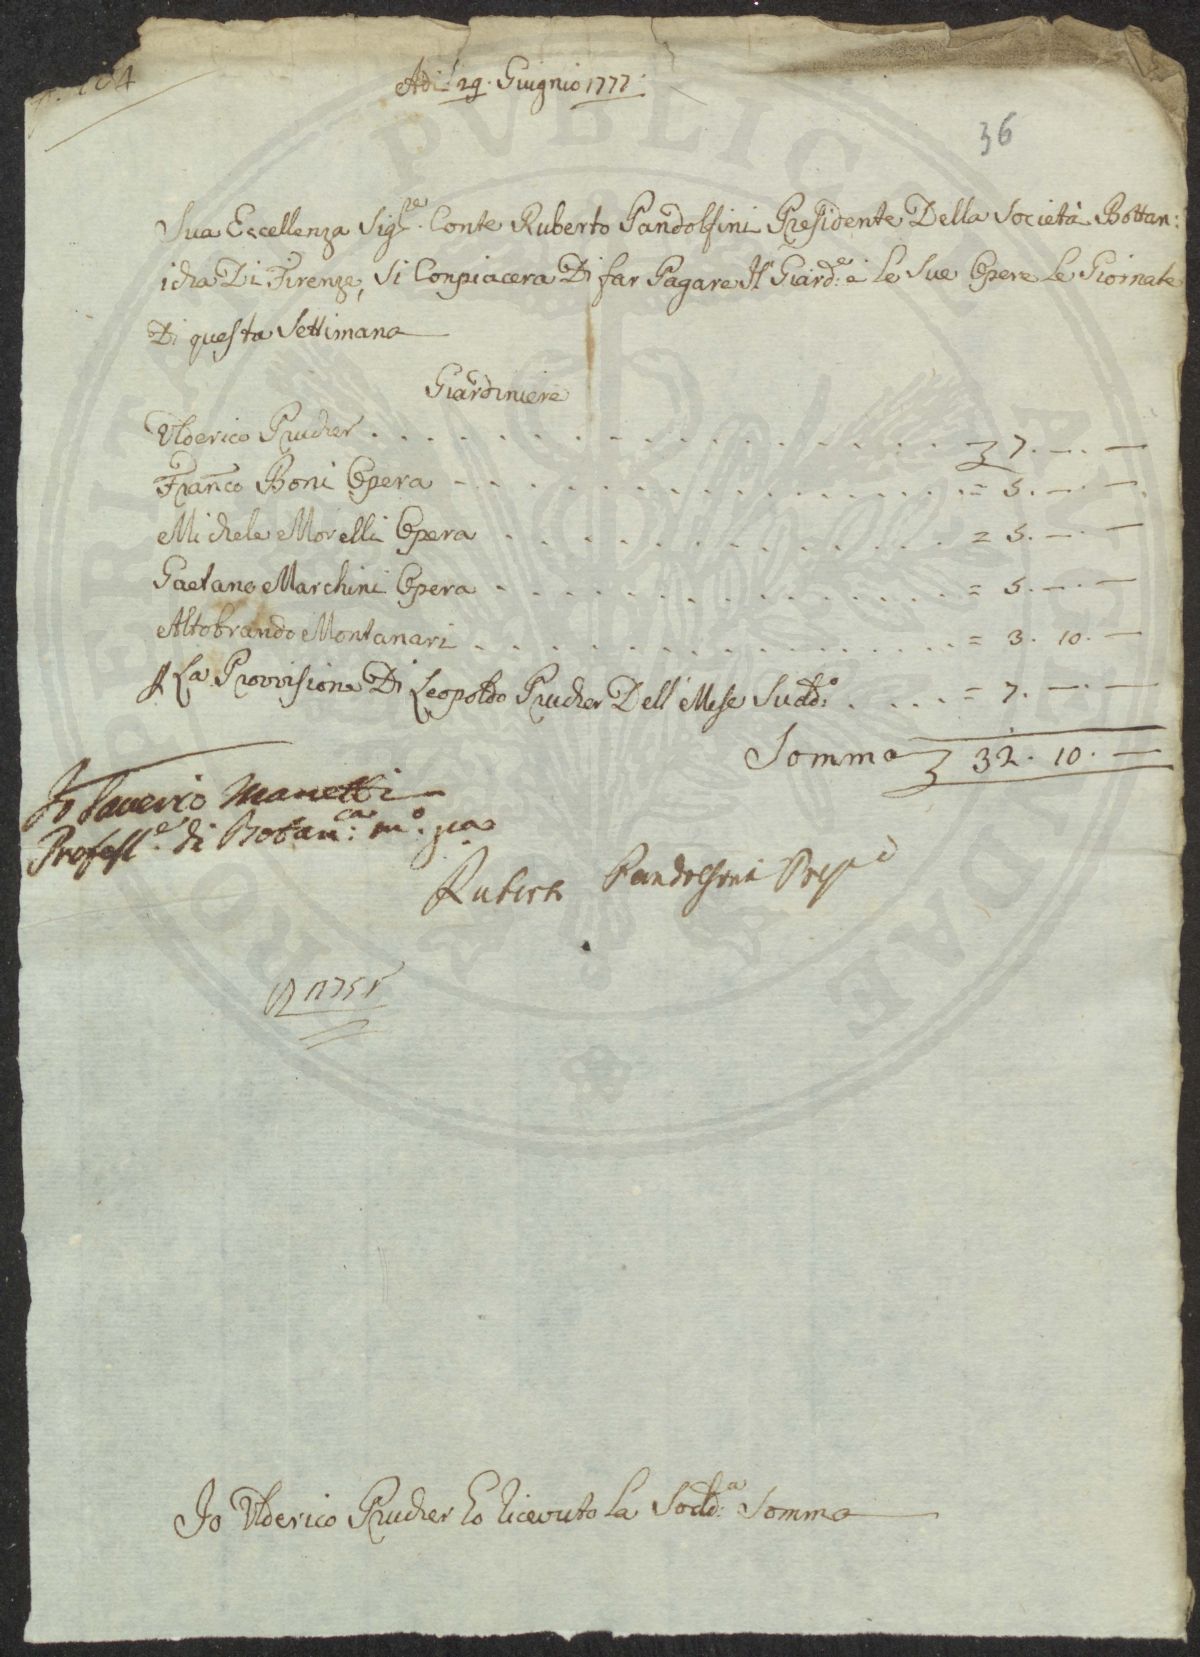 104
Adi: 29. Giugnio 1777:
36
Sua Eccellenza Sig.re Conte Ruberto Pandolfini Presidente Della Società Bottan:
icha Di Firenze, Si Conpiacera Di far Pagare Il Giard:e e le Sue Opere Le Giornate
Di questa Settimana
Giardiniere
Ulderico Prucher . . . . . . . . . . . . . . . . . . . . . . £ 7. —. —
Franco Boni Opera - . . . . . . . . . . . . . . . . . . = 5. —. —
Michele Morelli Opera . . . . . . . . . . . . . . . . = 5. —. —
Gaetano Marchini Opera . . . . . . . . . . . . . . . . = 5. —. —
Altobrando Montanari . . . . . . . . . . . . . . . . . = 3. 10. —
P La Provvisione Di Leopoldo Prucher Dell' Mese Sudd:o . . . . . = 7. —. —
Somma £ 32. 10. —
Io Saverio Manetti
Profess.e di Botan:ca m.o pa
Ruberto Pandolfini Presd
Io Ulderico Prucher ho ricevuto la Sodd:a Somma
PVBLICA